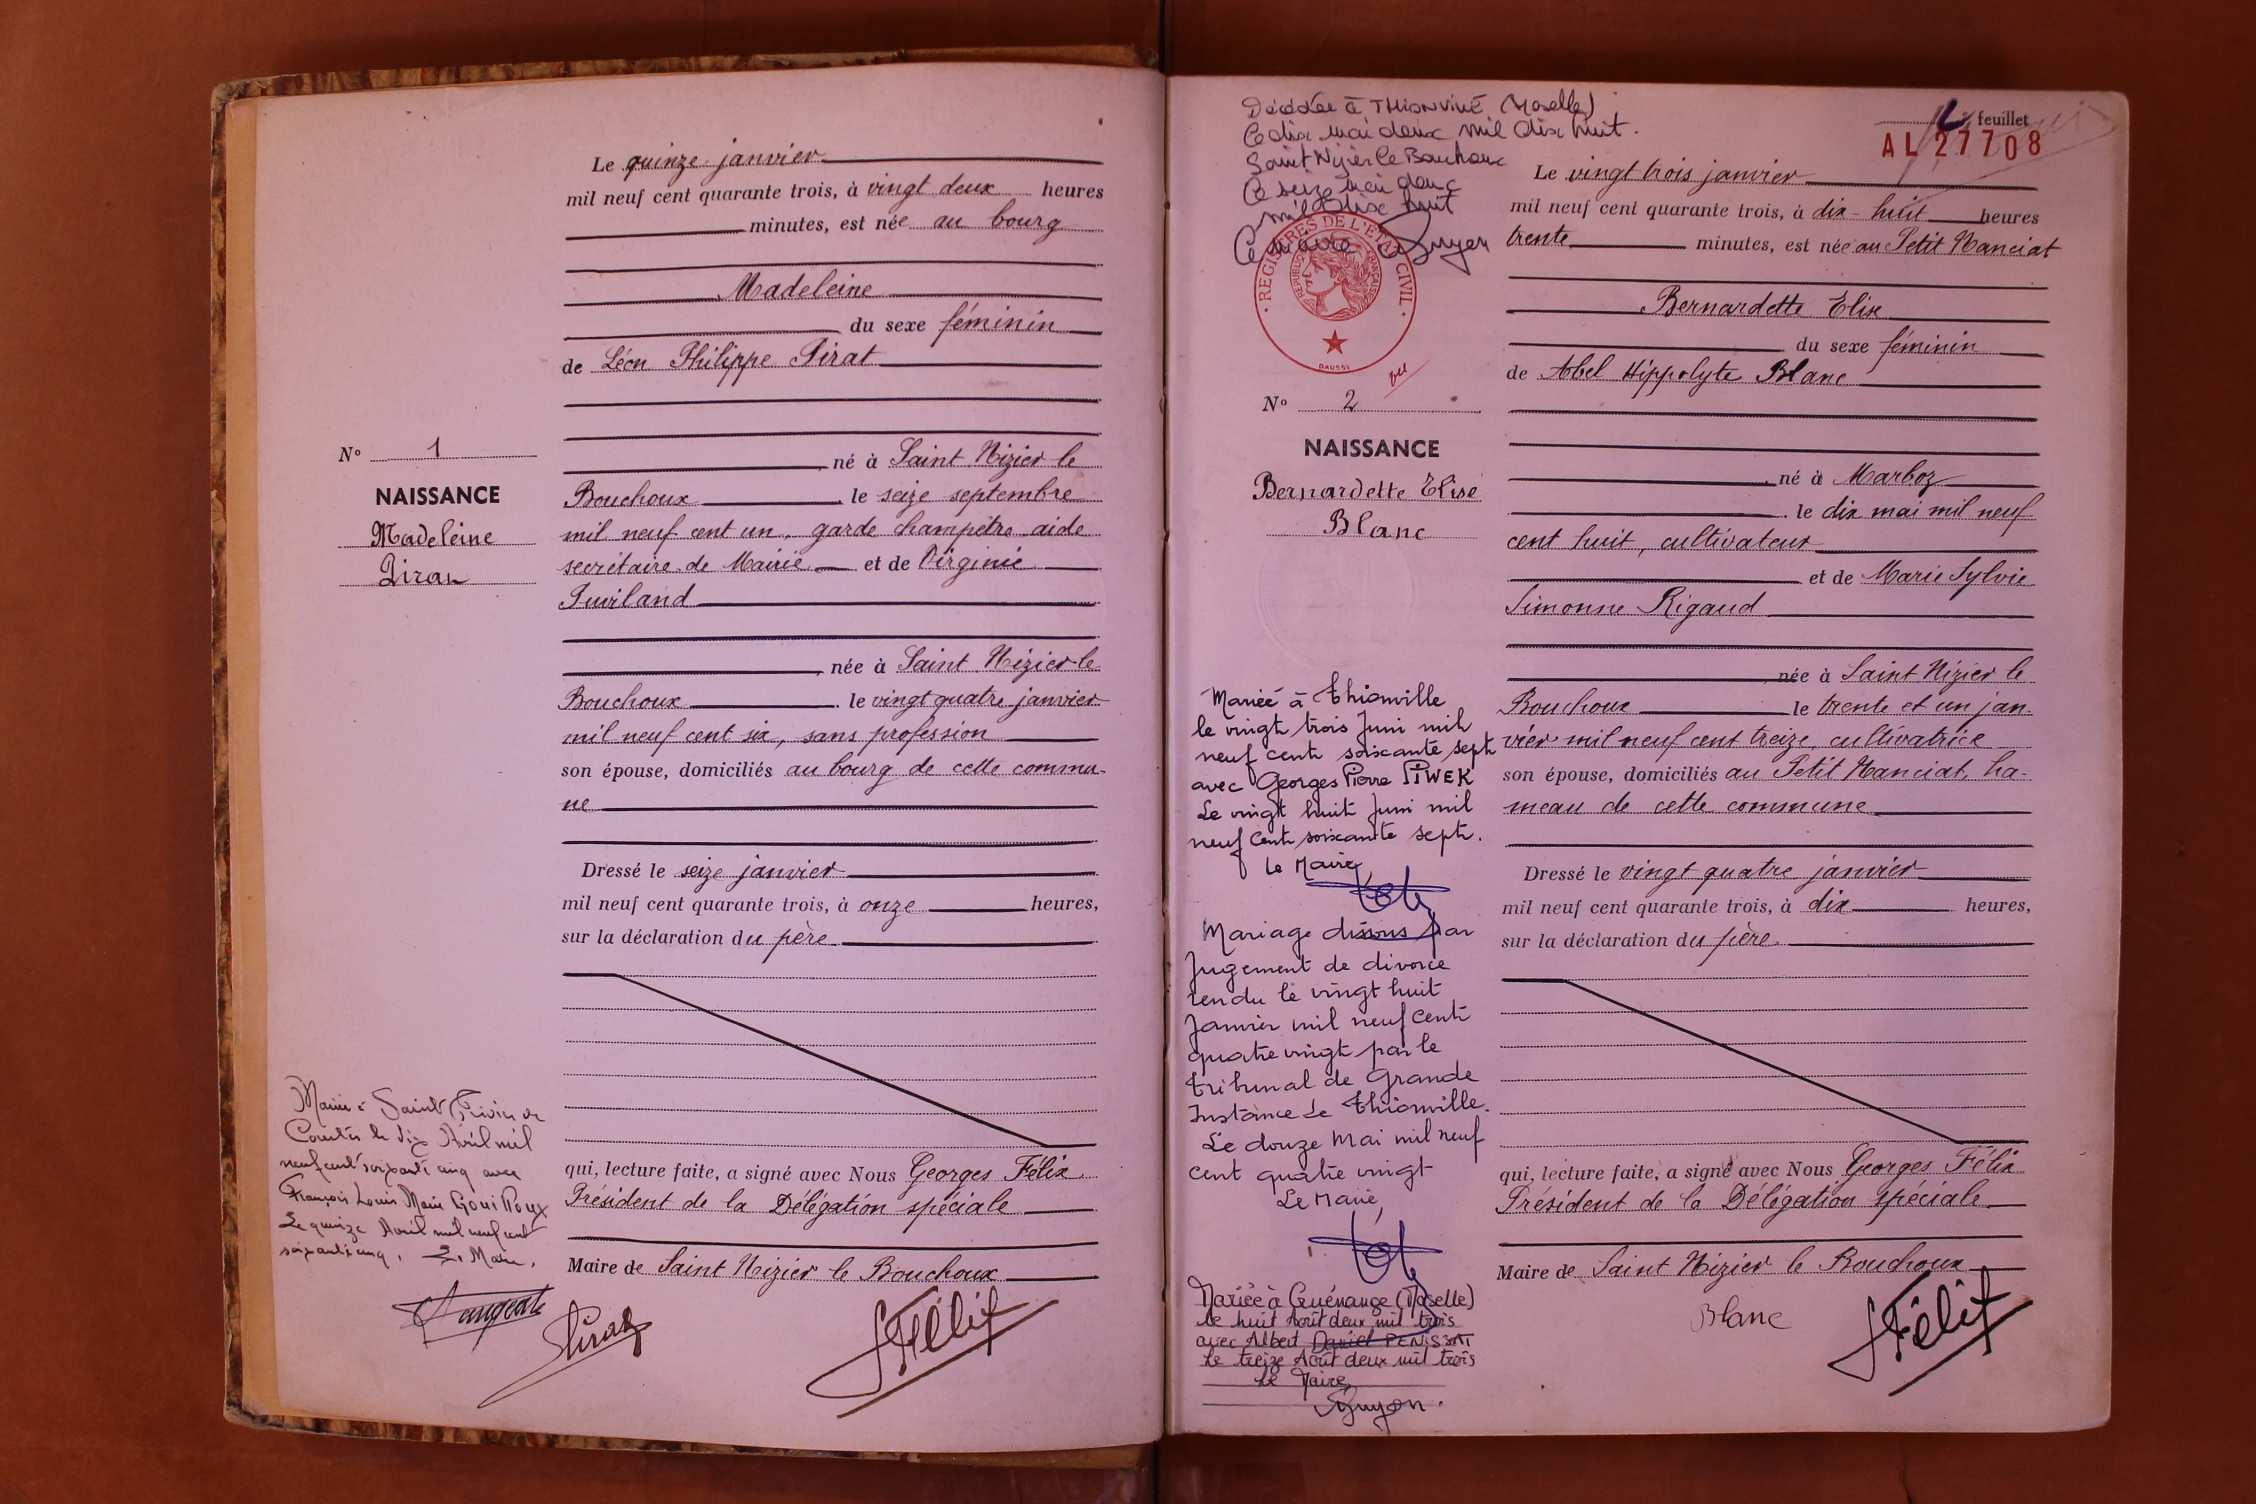 Le quinze janvier
mil neuf cent quarante trois, à vingt deux heures
minutes, est née au bourg
Madeleine
du sexe féminin
de Léon Philippe Pirat
né à Saint Nizier le
Bouchoux le seize septembre
mil neuf cent un, garde champêtre aide
secrétaire de Mairie et de Virginie
Puvilland
née à Saint Nizier le
Bouchoux le vingt quatre janvier
mil neuf cent six, sans profession
son épouse, domiciliés au bourg de cette commu-
ne
Dressé le seize janvier
mil neuf cent quarante trois, à onze heures,
sur la déclaration du père
qui, lecture faite, a signé avec Nous Georges Félix
Président de la Délégation spéciale
Maire de Saint Nizier le Bouchoux
Félix
N° 1
NAISSANCE
Madeleine
Pirat
Mariée à Saint Trivier de
Courtes le dix Avril mil
neuf cent soixante cinq avec
François Louis Marie
Le quinze Avril mil neuf cent
soixante cinq. Le Maire,
Décédée à THIONVILLE (Moselle)
Le dix mai deux mil dix huit.
Saint Nizier le Bouchoux
Le seize mai deux
mil dix huit
Le Maire Guyon
REGISTRES DE L'ETAT CIVIL
REPUBLIQUE FRANÇAISE
DAUSSI
vu
N° 2
NAISSANCE
Bernardette Elise
Blanc
Mariée à Thionville
le vingt trois Juin mil
neuf cent soixante sept
avec Georges Pierre PIWEK
Le vingt huit Juin mil
neuf cent soixante sept.
Le Maire,
Mariage dissous par
Jugement de divorce
rendu le vingt huit
Janvier mil neuf cent
quatre vingt par le
Tribunal de Grande
Instance de Thionville.
Le douze Mai mil neuf
cent quatre vingt
Le Maire,
Mariée à Guénange (Moselle)
le huit Août deux mil trois
avec Albert Daniel
Le treize Août deux mil trois
Le Maire,
Guyon.
2 feuillet
AL 27708
Le vingt trois janvier
mil neuf cent quarante trois, à dix-huit heures
trente minutes, est née au Petit Nanciat
Bernardette Elise
du sexe féminin
de Abel Hippolyte Blanc
né à Marboz
le dix mai mil neuf
cent huit, cultivateur
et de Marie Sylvie
Simonne Rigaud
née à Saint Nizier le
Bouchoux le trente et un jan-
vier mil neuf cent treize, cultivatrice
son épouse, domiciliés au Petit Nanciat, ha-
meau de cette commune
Dressé le vingt quatre janvier
mil neuf cent quarante trois, à dix heures,
sur la déclaration du père
qui, lecture faite, a signé avec Nous Georges Félix
Président de la Délégation spéciale
Maire de Saint Nizier le Bouchoux
Blanc
Félix